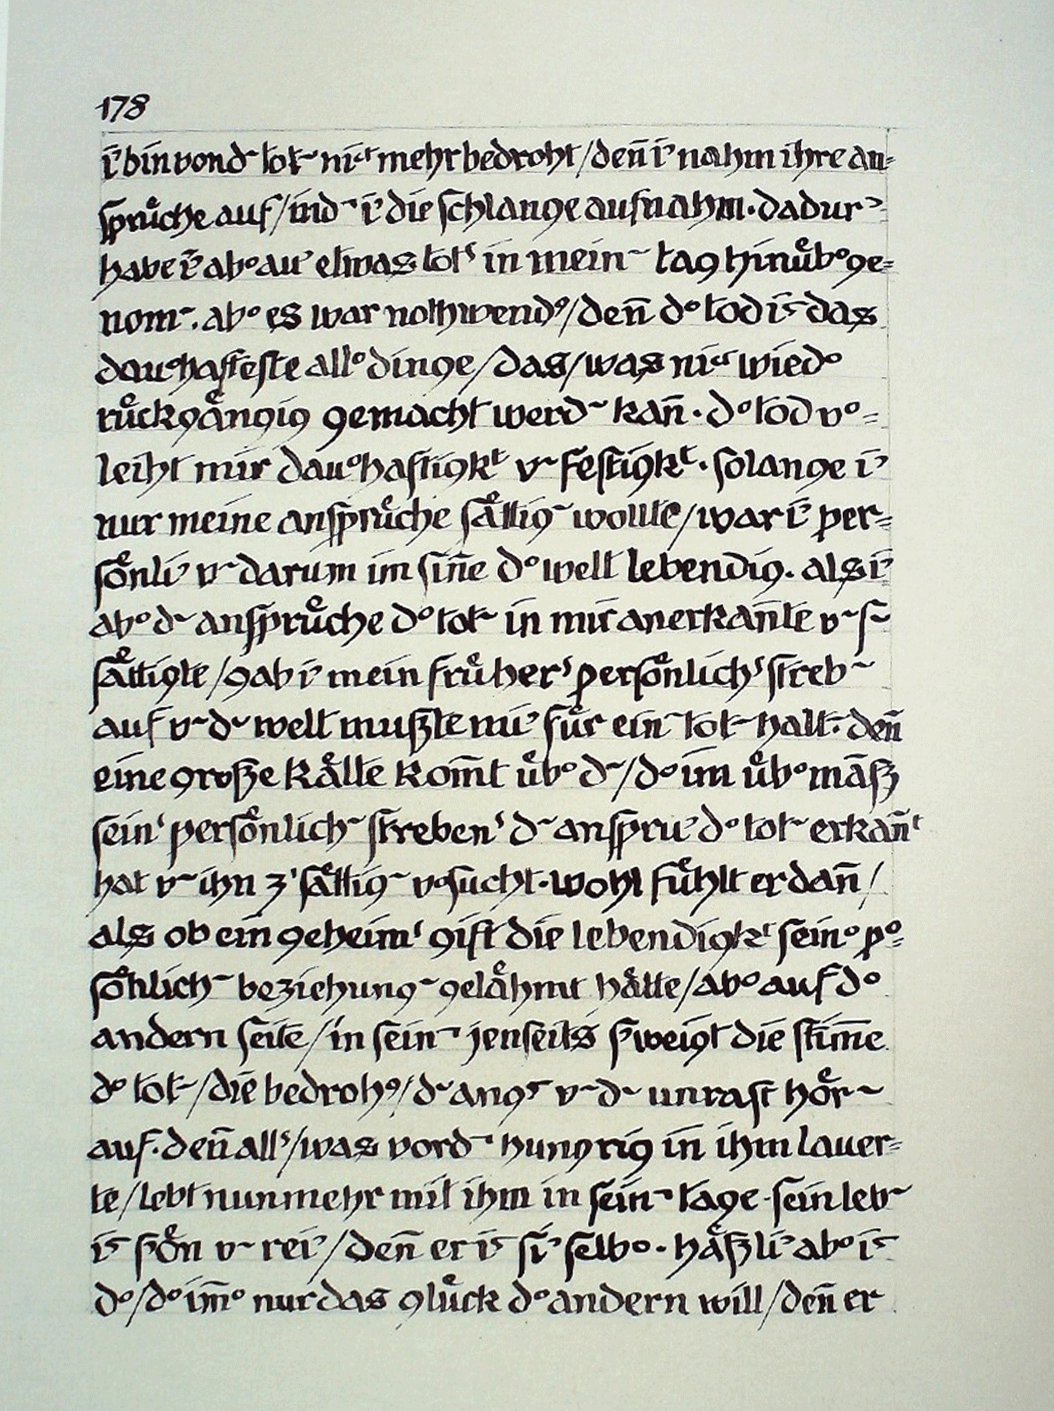 178
i͞ bin von d~ tot~ ni~t mehr bedroht / den̄ i͞ nahm ihre an=
ſprůche auf / ind~ i͞ die ſchlange aufnahm · dadur~
habe i͞ ab° au͛ etwas totˢ in mein~ tag hinůb° ge=
nom~. ab° es war nothwendꝰ / den̄ d° tod i~s das
dau°hafteſte all° dinge / das / was ni~t wied°
růckgångig gemacht werd~ kan̄ · d° tod v°=
leiht mir dau°haftigkᵗ v~ feſtigkᵗ · ſolange i͞
nur meine anſprůche ſåttig~ wollte / war i͞ per=
ſo̊nli͛ v~ darum im ſin̄e d° welt lebendig. als i͞
ab° d~ anſprůche d° tot~ in mir anerkan̄te v~ ſ~
ſåttigte / gab i͞ mein frůherˢ perſo̊nlichˢ ſtreb~
auf v~ d~ welt mußte mi͛ fůr ein~ tot~ halt~. den̄
eine große Kålte Kom̄t ůb° d~ / d° im ůb°māß
ſeinˢ perſo̊nlich~ ſtrebenˢ d~ anſpru͛ d° tot~ erkan̄ᵗ
hat v~ ihn z' ſåttig~ v°ſucht · wohl fůhlt er dan̄ /
als ob ein geheimˢ gift die lebendigkᵗ ſein° p°=
ſo̊nlich~ beziehung~ gelåhmt håtte / ab° auf d°
andern ſeite / in ſein~ jenſeits ſ͛weigt die ſtim̄e
d° tot~ / die bedrohꝰ / d~ angſᵗ v~ d~ unraſt ho̊r~
auf · den̄ allˢ / was vord~ hungrig in ihm lauer=
te / lebt nunmehr mit ihm in ſein~ tage · ſein leb~
i~s ſ͛o̊n v~ rei͛ / den̄ er i~s ſi͛ ſelb° · håßli͛ ab° i~s
d° / d° im̄° nur das glůck d° andern will / den̄ er